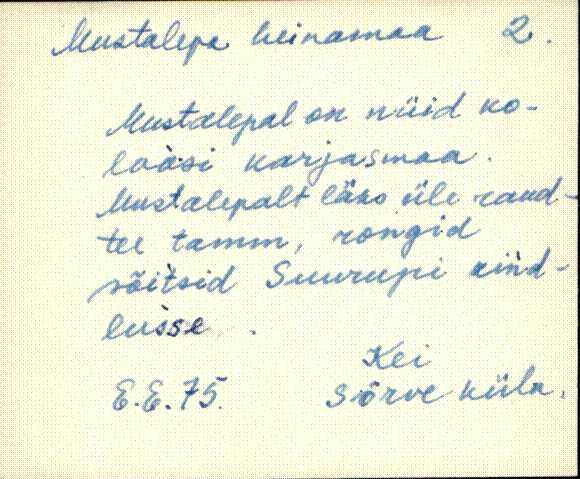 Mustalepa heinamaa 2.
Mustalepal on nüid ko-
loosi karjasmaa.
Mustalepalt läks üle raud-
tee tamm, rongid
sõitsid Suurupi kind-
lusse.
Kei
E.E.75. Sõrve küla.